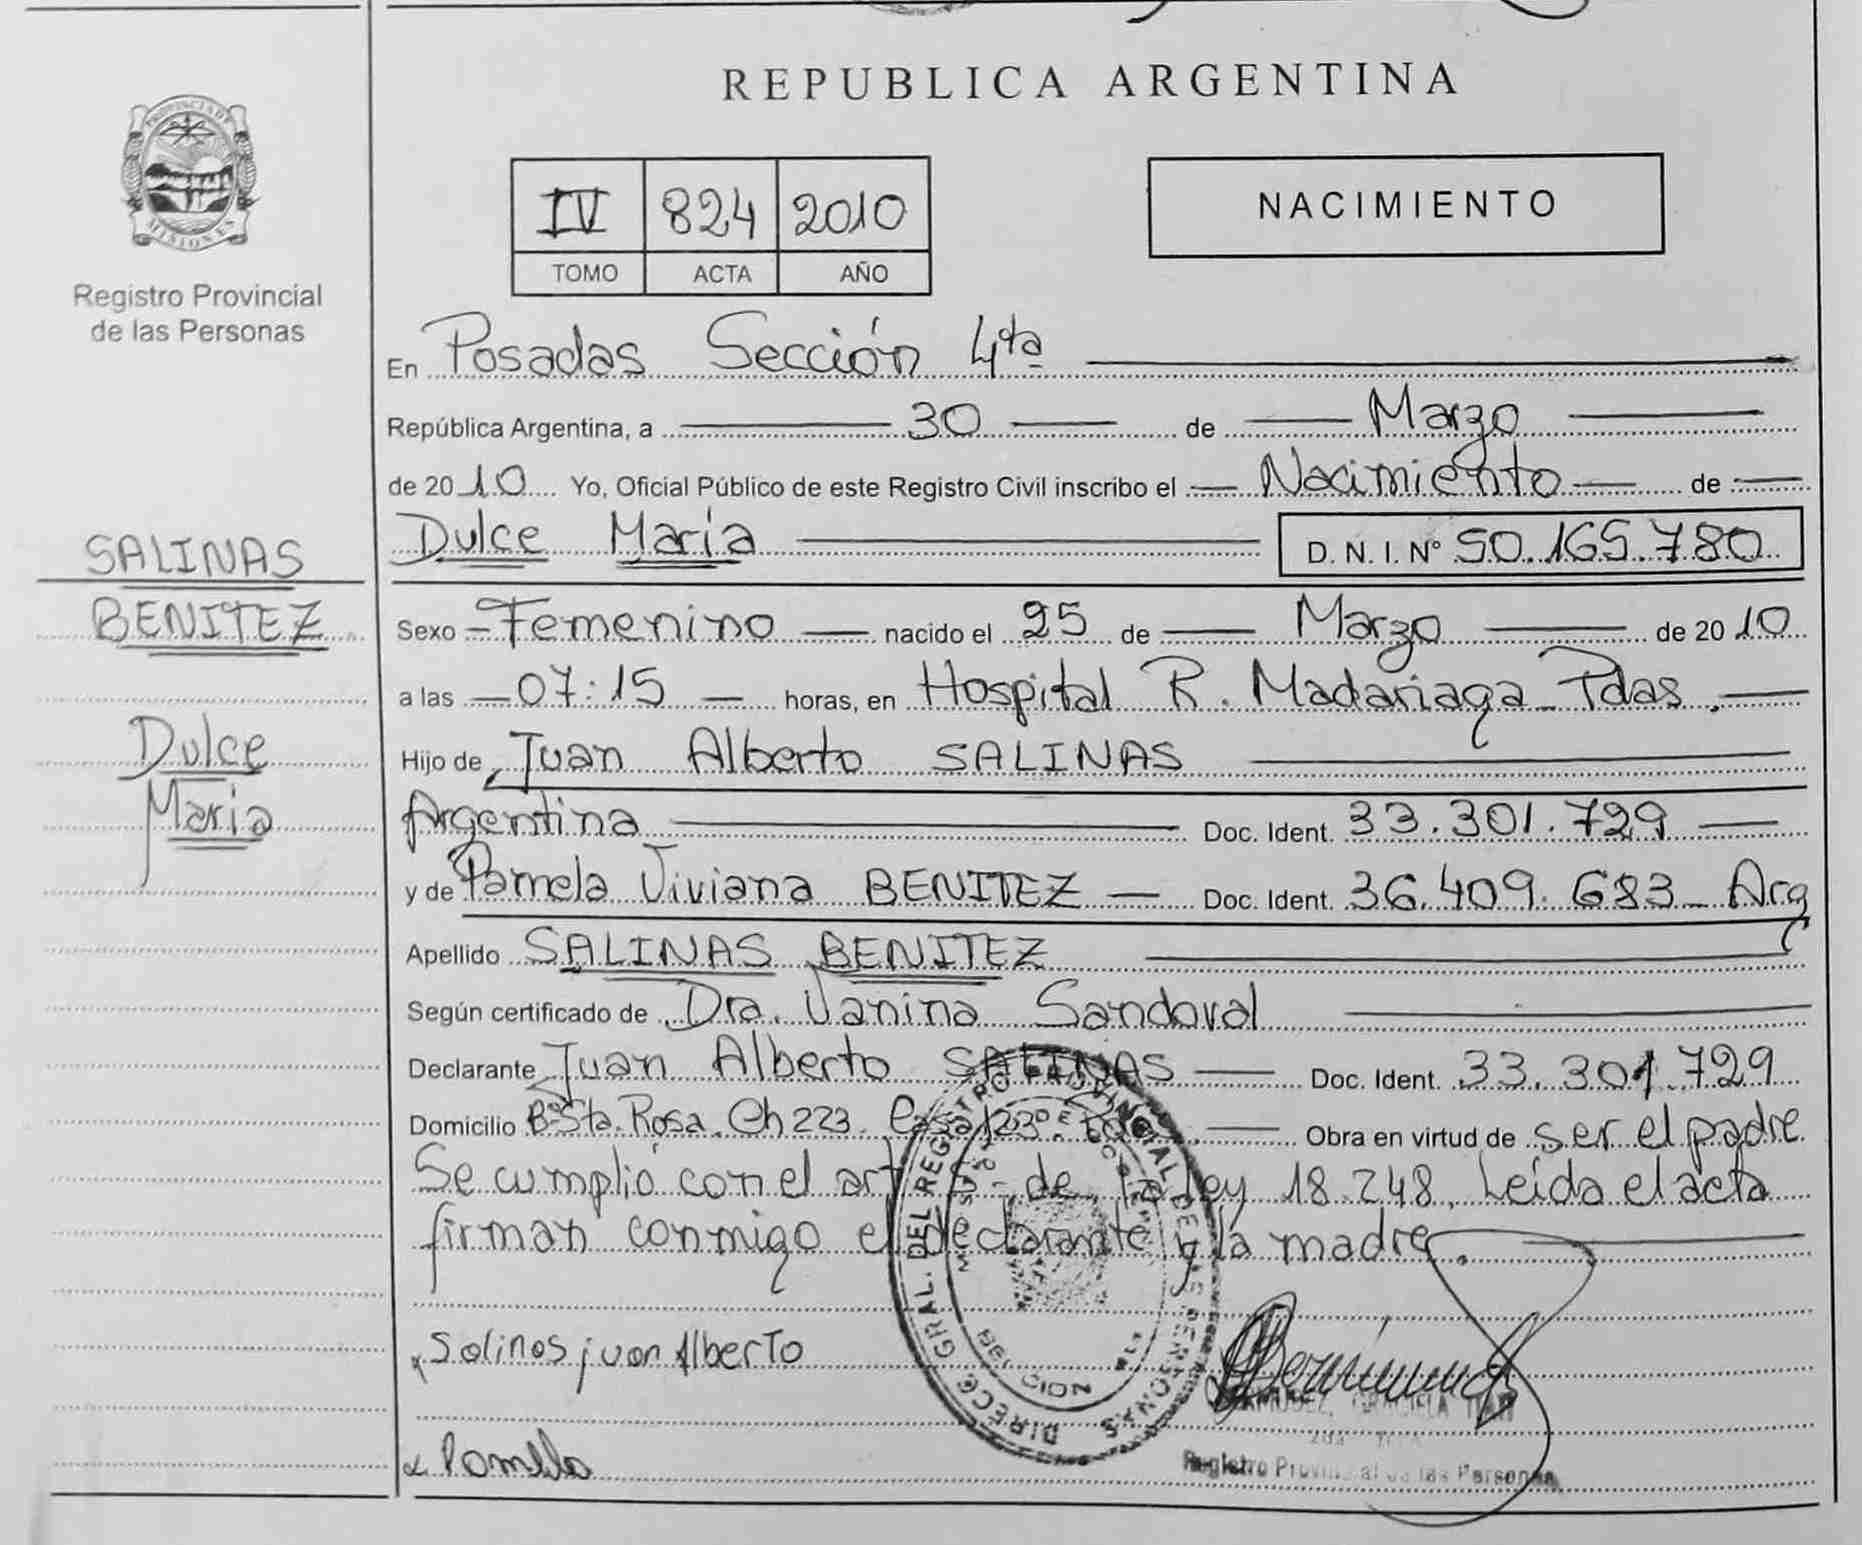 REPUBLICA ARGENTINA
PROVINCIA DE
MISIONES
Registro Provincial
de las Personas
IV 824 2010
TOMO ACTA AÑO
NACIMIENTO
En Posadas Sección 4ta
República Argentina, a 30 de Marzo
de 2010 Yo, Oficial Público de este Registro Civil inscribo el Nacimiento de
Dulce Maria D. N. I. Nº 50.165.780
SALINAS
BENITEZ
Dulce
Maria
Sexo Femenino nacido el 25 de Marzo de 2010
a las 07:15 horas, en Hospital R. Madariaga Pdas.
Hijo de Juan Alberto SALINAS
Argentina Doc. Ident. 33.301.729
y de Pamela Viviana BENITEZ Doc. Ident. 36.409.683 Arg
Apellido SALINAS BENITEZ
Según certificado de Dra. Vanina Sandoval
Declarante Juan Alberto SALINAS Doc. Ident. 33.301.729
Domicilio Bº Sta. Rosa Ch 223. Casa 123 Obra en virtud de ser el padre
Se cumplió con el art de la ley 18.248, Leída el acta
firman conmigo el declarante y la madre.
Salinas juan Alberto
Pamela
DIRECC. GRAL. DEL REGISTRO PROVINCIAL DE LAS PERSONAS
GRACIELA
Registro Provincial de las Personas